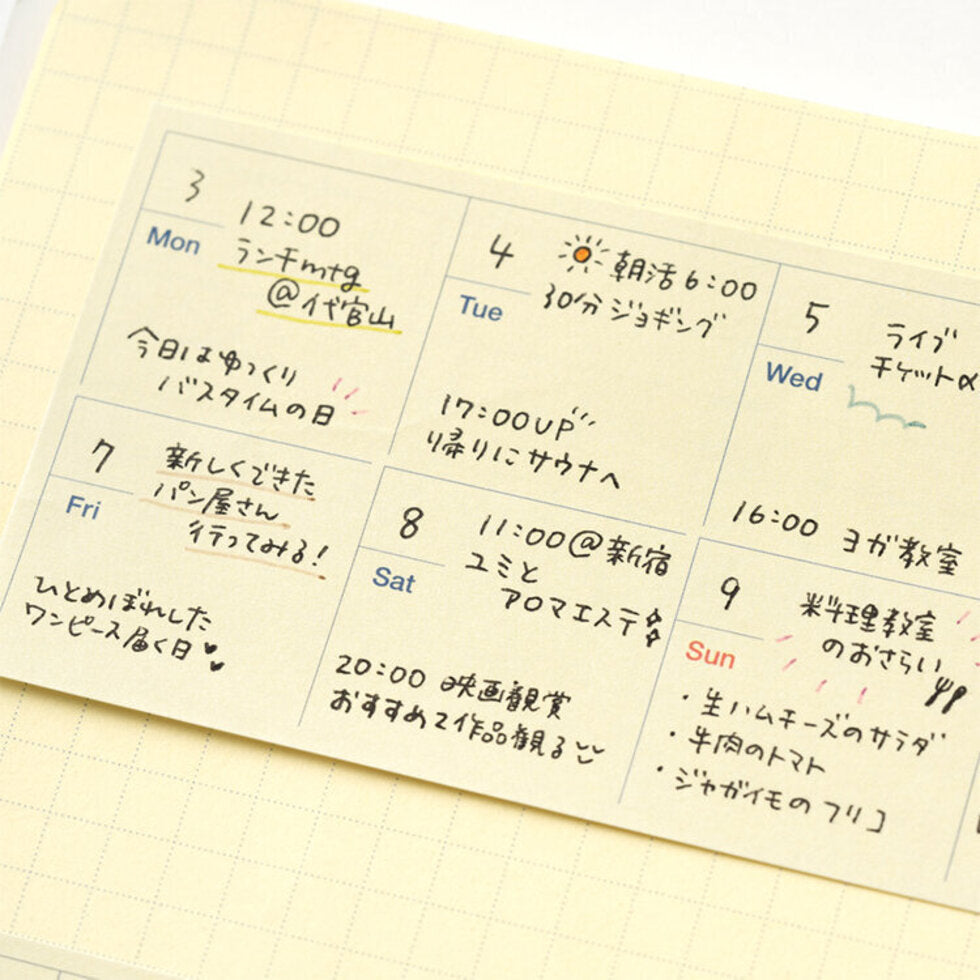 3
Mon
12:00
ランチmtg
@代官山
今日はゆっくり
バスタイムの日
4
Tue
朝活6:00
30分ジョギング
17:00UP
帰りにサウナへ
5
Wed
ライブ
チケット
16:00 ヨガ教室
7
Fri
新しくできた
パン屋さん
行ってみる!
ひとめぼれした
ワンピース届く日
8
Sat
11:00@新宿
ユミと
アロマエステ
20:00 映画観賞
おすすめ2作品観る
9
Sun
料理教室
のおさらい
・生ハムチーズのサラダ
・牛肉のトマト
・ジャガイモのフリコ